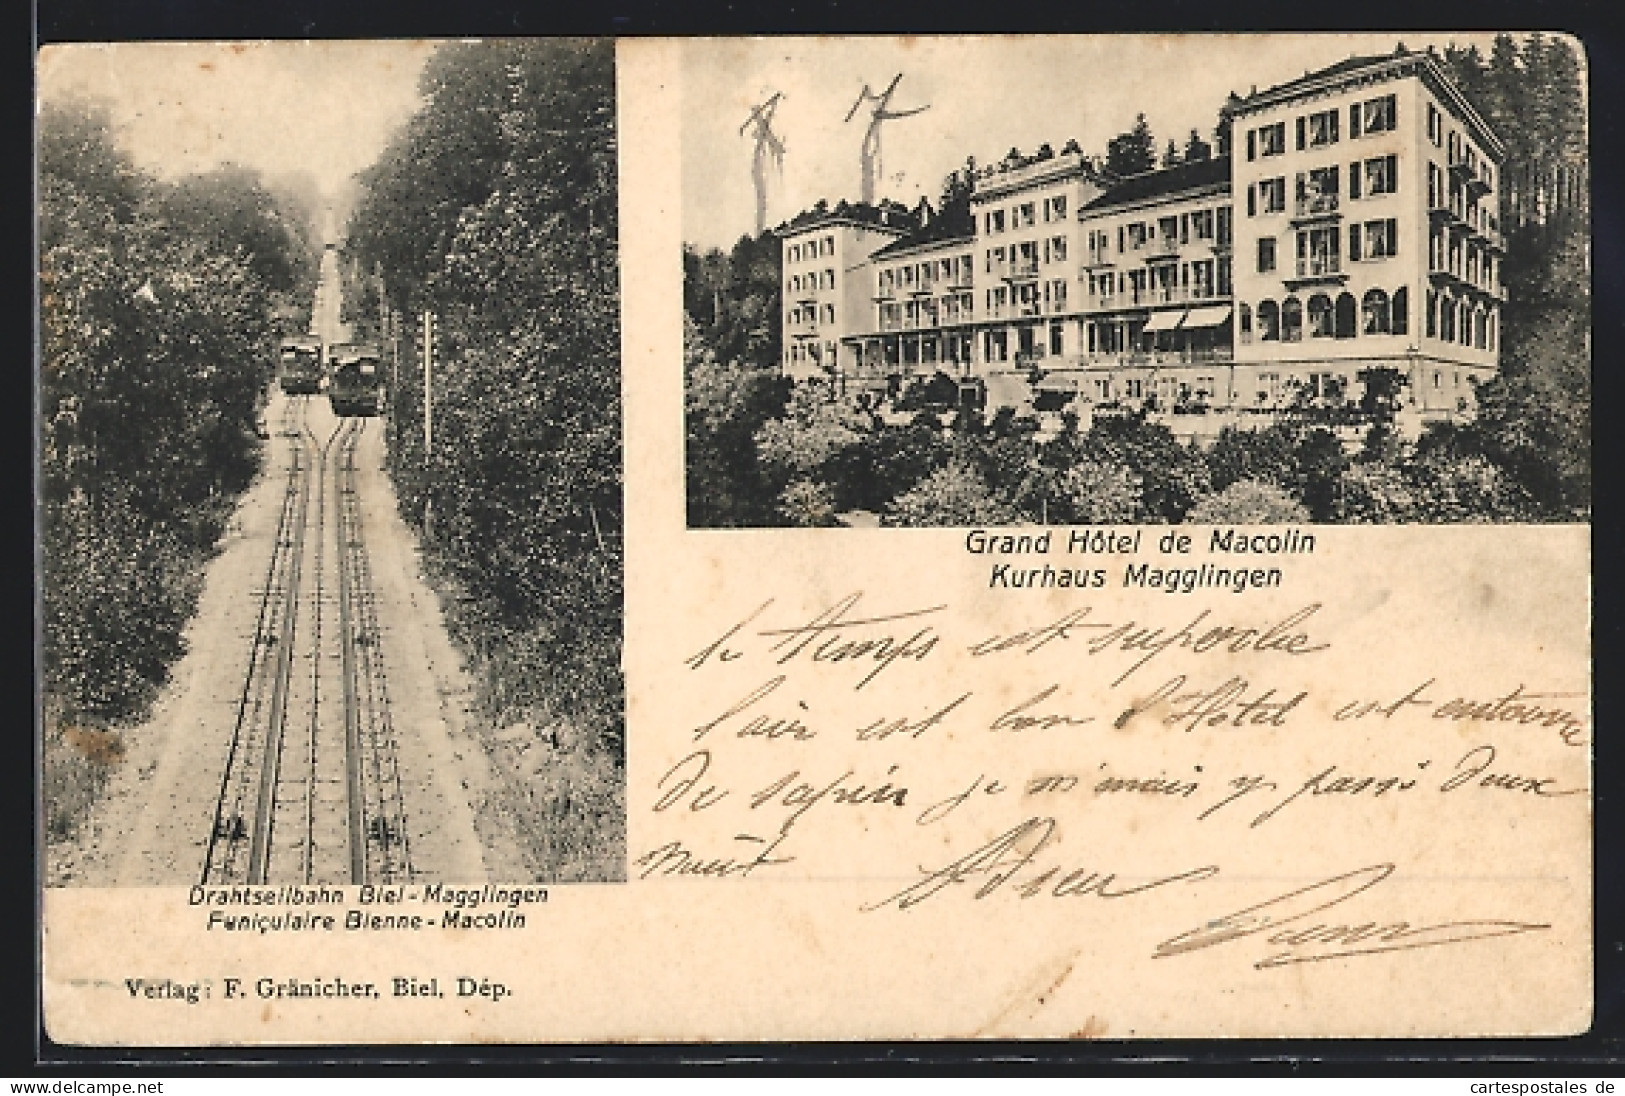 Grand Hôtel de Macolin
Kurhaus Magglingen
le temps est superbe
l'air est bon l'Hôtel est entouré
de sapin je m'mais y passé deux
nuit Adieu
Drahtseilbahn Biel-Magglingen
Funiçulaire Bienne-Macolin
Verlag: F. Gränicher, Biel, Dép.
www.cartespostales.de
cartespostales de